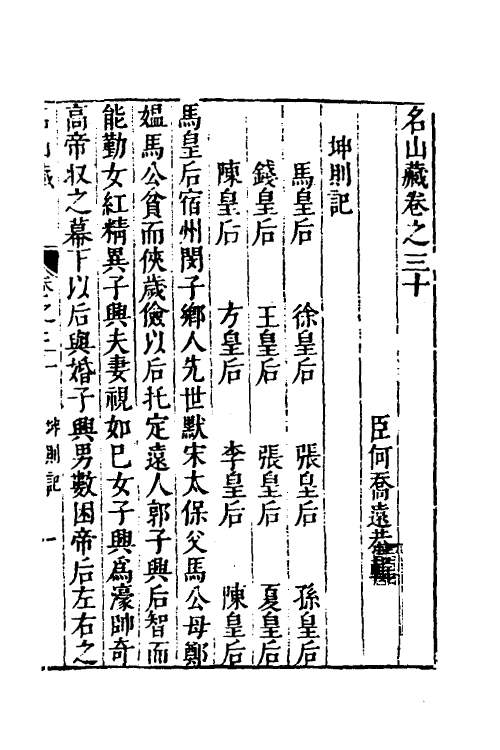 名山藏卷之三十
臣何喬遠恭輯
坤則記
馬皇后　徐皇后　張皇后　孫皇后
錢皇后　王皇后　張皇后　夏皇后
陳皇后　方皇后　李皇后　陳皇后
馬皇后宿州閔子鄉人先世默宋太保父馬公母鄭
媼馬公貧而俠歲儉以后托定遠人郭子興后智而
能勤女紅精異子興夫妻視如已女子興爲濠帥奇
高帝収之幕下以后與婚子興男數困帝后左右之
名山藏　卷之三十　坤則記　一